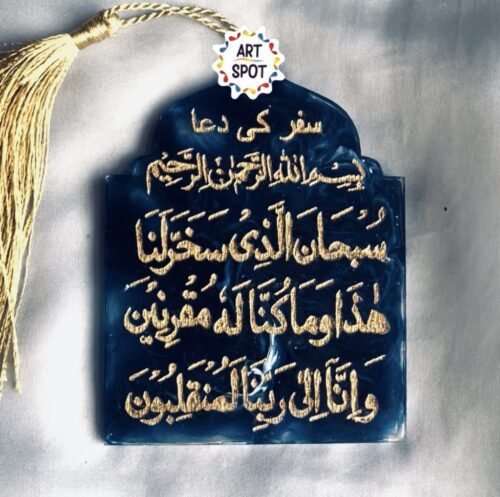 ART
SPOT
سفر کی دعا
بِسْمِ اللهِ الرَّحْمٰنِ الرَّحِيْمِ
سُبْحَانَ الَّذِیْ سَخَّرَ لَنَا
هٰذَا وَمَا كُنَّا لَهٗ مُقْرِنِيْنَ
وَاِنَّا اِلٰى رَبِّنَا لَمُنْقَلِبُوْنَ